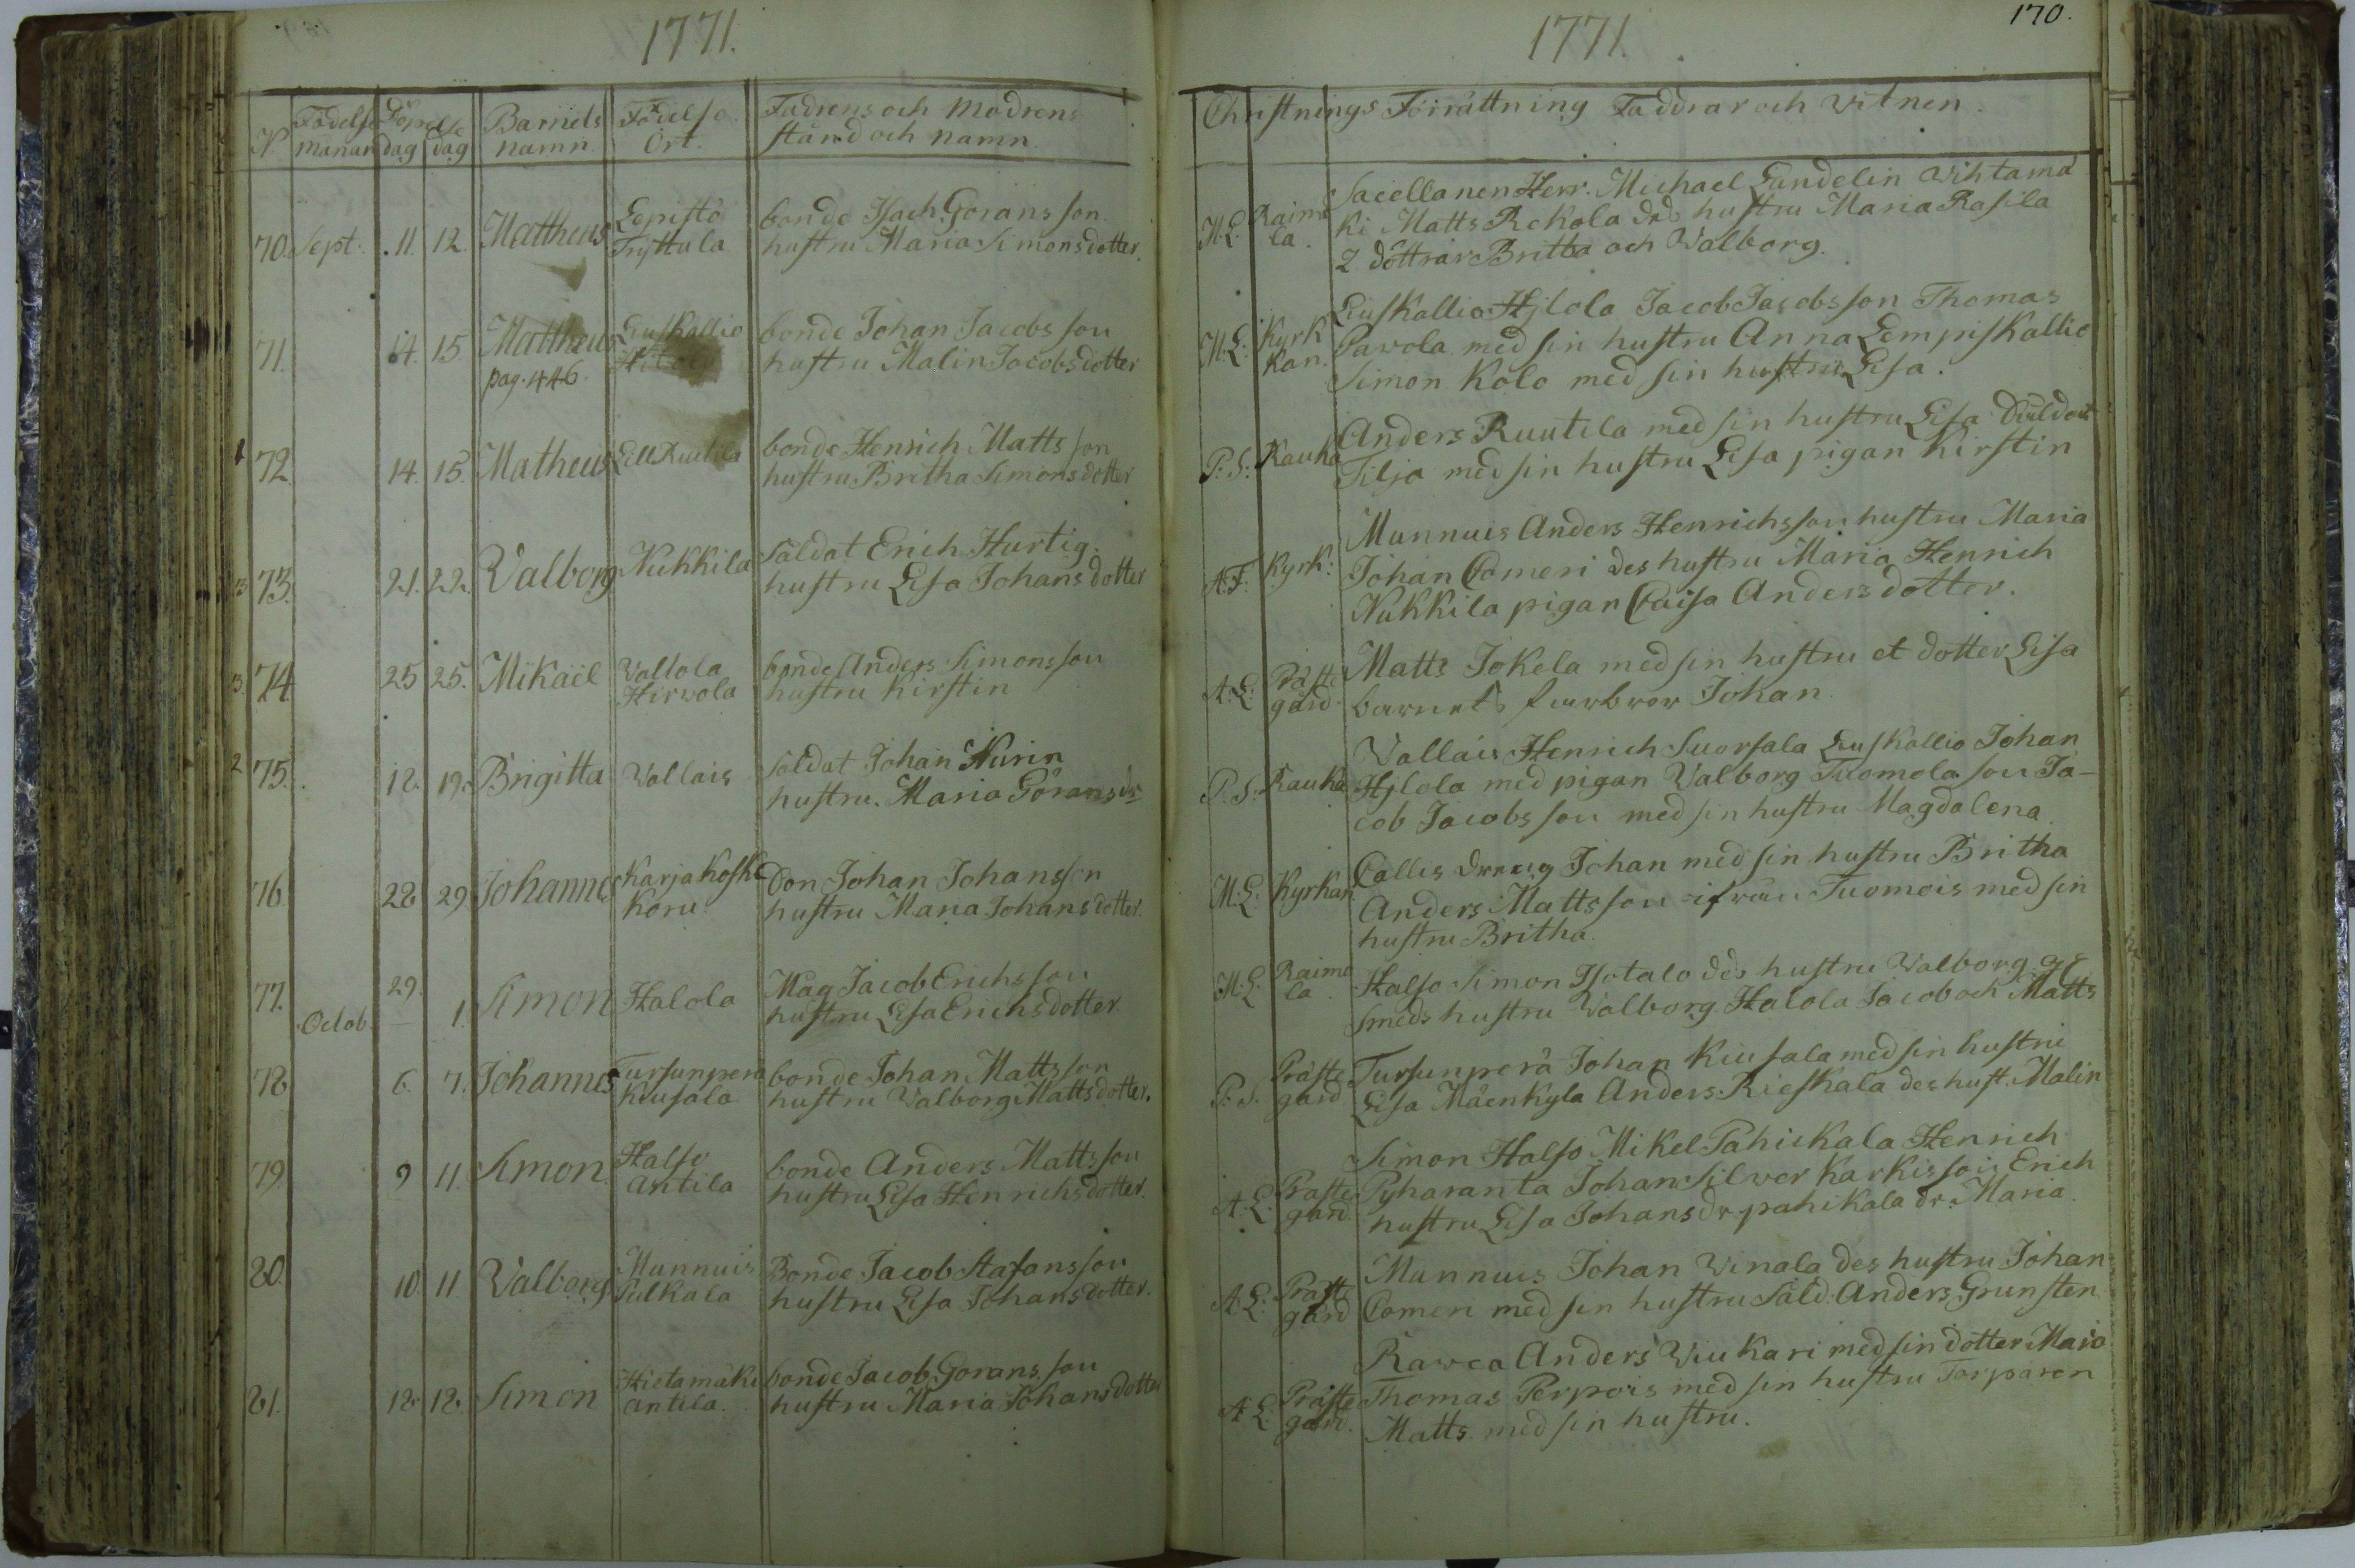 1771.
N Födelse Döpelse Barnets Födelse Fadrens och Modrens
månan dag dag namn Ort. stånd och namn
70. Sept. 11. 12. Mattheus Lepistö bonde Isach Görans son
Tryttula hustru Maria Simonsdotter.
71. 14. 15. Mattheus Liuskallio bonde Johan Jacobs son
pag. 446 hustru Malin Jacobsdotter
72. 14. 15. Matheus Lill Ruutila bonde Henrich Matts son
hustru Britha Simonsdotter
3 73. 21. 22. Valborg Nukkila Soldat Erich Hurtig.
hustru Lisa Johansdotter
3. 74 25 25. Mikaël Vallola bonde Anders Simonsson
Hirwola hustru Kirstin
2 75. 18. 19. Brigitta Vallais soldat Johan Nurin
hustru. Maria Göransdr
76 28 29 Johannes Karjakoski Don Johan Johansson
Koru hustru Maria Johansdotter
77. 29. Simon Halola Mäg Jacob Erichsson
Octob. — 1. hustru Lisa Erichsdotter.
78 6. 7. Johannes Tursunperä bonde Johan Mattsson
Kiusala hustru Valborg Mattsdotter.
79. 9 11. Simon Halso bonde Anders Mattsson
Antila hustru Lisa Henrichsdotter.
80. 10. 11 Valborg Munnuis Bonde Jacob Stafansson
Sulkala hustru Lisa Johansdotter.
81. 18. 18. Simon Hietamäki bonde Jacob Görans son
Antila. hustru Maria Johansdotter
1771. 170.
Christnings Förrättning Faddrar och Vitnen.
Sacellanen Herr. Michael Lundelin Wihtamä
M. L. Raima ki Matts Rekola des hustru Maria Rasila
la. 2 döttrar Britta och Valborg.
Liuskallio Hjlola Jacob Jacobsson Thomas
M. L. Kyrk Pawola med sin hustru Anna Lempiskallio
kan. Simon Kolo med sin hustru Lisa.
Anders Ruutila med sin hustru Lisa
P. S. Kauha Silja med sin hustru Lisa pigan Kirstin
Munnuis Anders Henrichsson hustru Maria
A. F. Kyrk: Johan Comeri des hustru Maria Henrich
Nukkila pigan Caisa Andersdotter.
Präste Matts Jokela med sin hustru et dotter Lisa
A. L. gård. barnets farbror Johan
Vallais Henrich Suorsala Liuskallio Johan
P. S. Kauha Hjlola med pigan Valborg Tuomola son Ja-
cob Jacobsson med sin hustru Magdalena.
M. L. Kyrkan Callis dreng Johan med sin hustru Britha
Anders Mattsson ifrån Tuomois med sin
hustru Britha.
M. L. Raima Halso Simon Isotalo des hustru Valborg
la. Smeds hustru Valborg Halola Jacob och Matts
Präste Tursunperä Johan Kiusala med sin hustru
P. S. gård Lisa Mäenkyla Anders Rieskala des hust. Malin
Simon Halso Mikel Pahikala Henrich
Präste Pyharanta Johan Silver Karkis son Erich
A. L. gård. hustru Lisa Johans dr pahikala dr. Maria.
Munnuis Johan Winala des hustru Johan
A. L. Präste gård Comeri med sin hustru Sold: Anders Grunsten
Rawea Anders Wiukari med sin dotter Maria
Präste Thomas Perpois med sin hustru Torparen
A. L. gård. Matts med sin hustru.